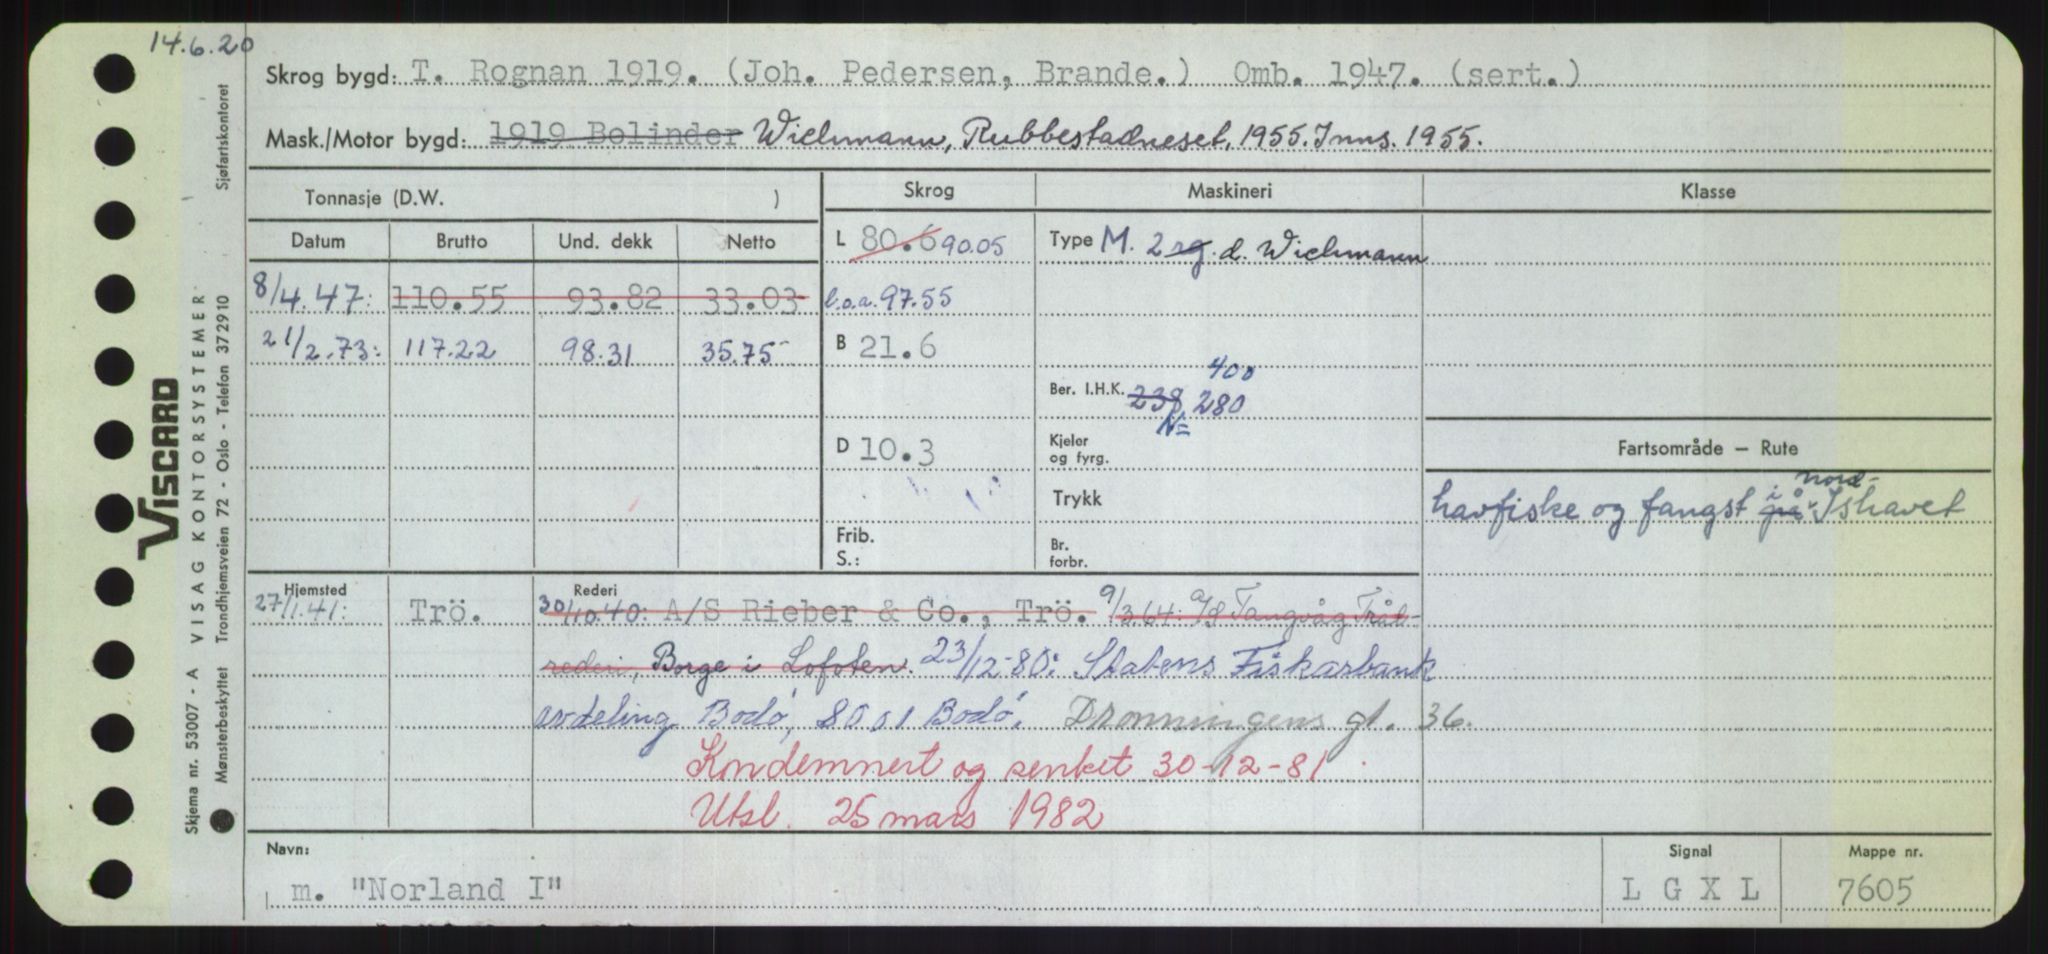 14.6.20
Skrog bygd: T. Rognan 1919. (Joh. Pedersen, Brande.) Omb. 1947. (sert.)
Mask./Motor bygd: 1919 Bolinder Wichmann, Rubbestadneset, 1955. Inns. 1955.
Tonnasje (D.W. )
Skrog
Maskineri
Klasse
Datum Brutto Und. dekk Netto
L 80.6 90.05
Type M. 2 sg. d. Wichmann
8/4.47: 110.55 93.82 33.03
l.o.a. 97.55
21/2.73: 117.22 98.31 35.75
B 21.6
400
Ber. I.H.K. 238 280
N=
D 10.3
Kjeler
og fyrg.
Fartsområde — Rute
Trykk
i nord-
havfiske og fangst på Ishavet
Frib.
S.:
Br.
forbr.
Hjemsted
Rederi
27/1.41: Trö. 30/10.40: A/S Rieber & Co., Trö. 9/3 64: A/S Tangvåg Trål-
rederi, Borge i Lofoten. 23/12-80: Statens Fiskarbank
avdeling Bodø, 8001 Bodø. Dronningens gt. 36.
Kondemnert og senket 30-12-81.
Utsl. 25 mars 1982
Navn:
m. "Norland I"
Signal
L G X L
Mappe nr.
7605
VISCARD
Skjema nr. 53007 - A VISAG KONTORSYSTEMER
Mønsterbeskyttet Trondhjemsveien 72 - Oslo - Telefon 372910 Sjøfartskontoret